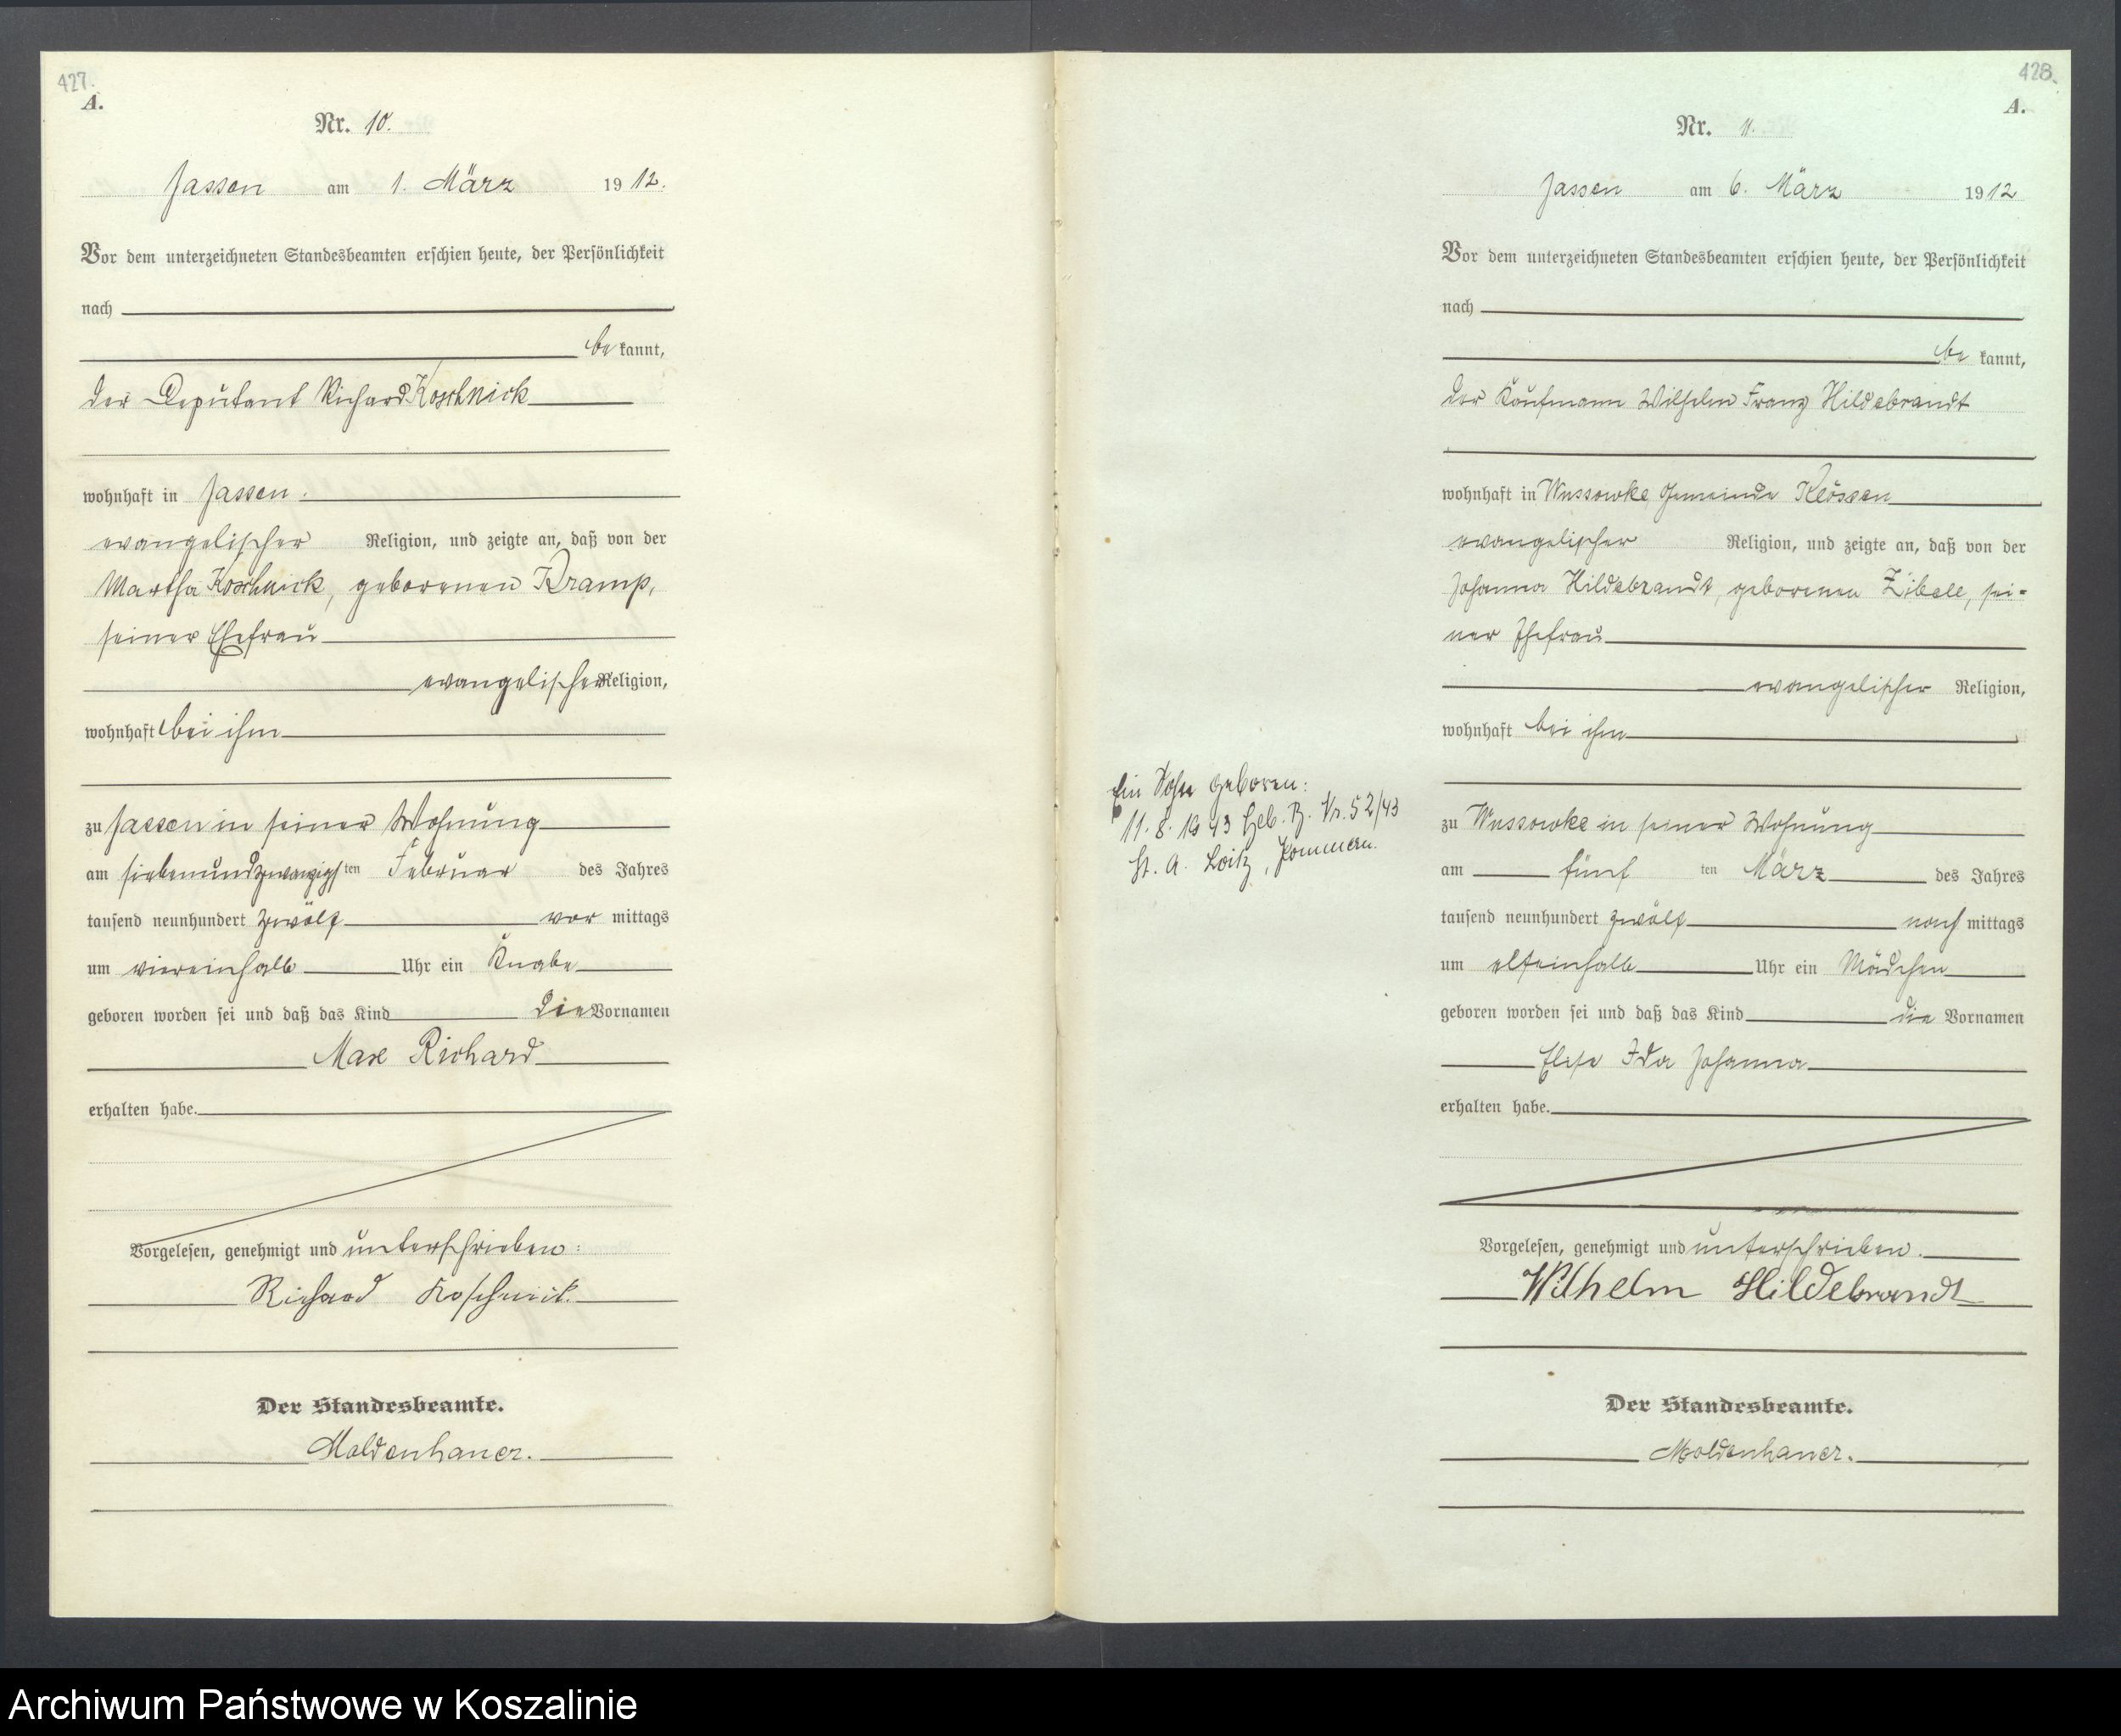 427.
A.
Nr. 10.
Jassen am 1. März 1912.
Vor dem unterzeichneten Standesbeamten erschien heute, der Persönlichkeit
nach
be kannt,
der Deputant Richard Koschnick
wohnhaft in Jassen.
evangelischer Religion, und zeigte an, daß von der
Martha Koschnick, geborenen Kramp,
seiner Ehefrau
evangelischer Religion,
wohnhaft bei ihm
zu Jassen in seiner Wohnung
am siebenundzwanzigsten Februar des Jahres
tausend neunhundert zwölf vor mittags
um viereinhalb Uhr ein Knabe
geboren worden sei und daß das Kind die Vornamen
Max Richard
erhalten habe.
Vorgelesen, genehmigt und unterschrieben:
Richard Koschnick.
Der Standesbeamte.
Moldenhauer.
428.
A.
Nr. 11.
Jassen am 6. März 1912
Vor dem unterzeichneten Standesbeamten erschien heute, der Persönlichkeit
nach
be kannt,
der Kaufmann Wilhelm Franz Hildebrandt
wohnhaft in Wussowke, Gemeinde Klössen
evangelischer Religion, und zeigte an, daß von der
Johanna Hildebrandt, geborenen Zibell, sei-
ner Ehefrau
evangelischer Religion,
wohnhaft bei ihm
zu Wussowke in seiner Wohnung
am fünf ten März des Jahres
tausend neunhundert zwölf nach mittags
um elfeinhalb Uhr ein Mädchen
geboren worden sei und daß das Kind die Vornamen
Else Ida Johanna
erhalten habe.
Vorgelesen, genehmigt und unterschrieben.
Wilhelm Hildebrandt
Der Standesbeamte.
Moldenhauer.
Ein Sohn geboren:
11.8.1943 Geb. B. Nr. 52/43
St. A. Loitz, Pommern.
Archiwum Państwowe w Koszalinie